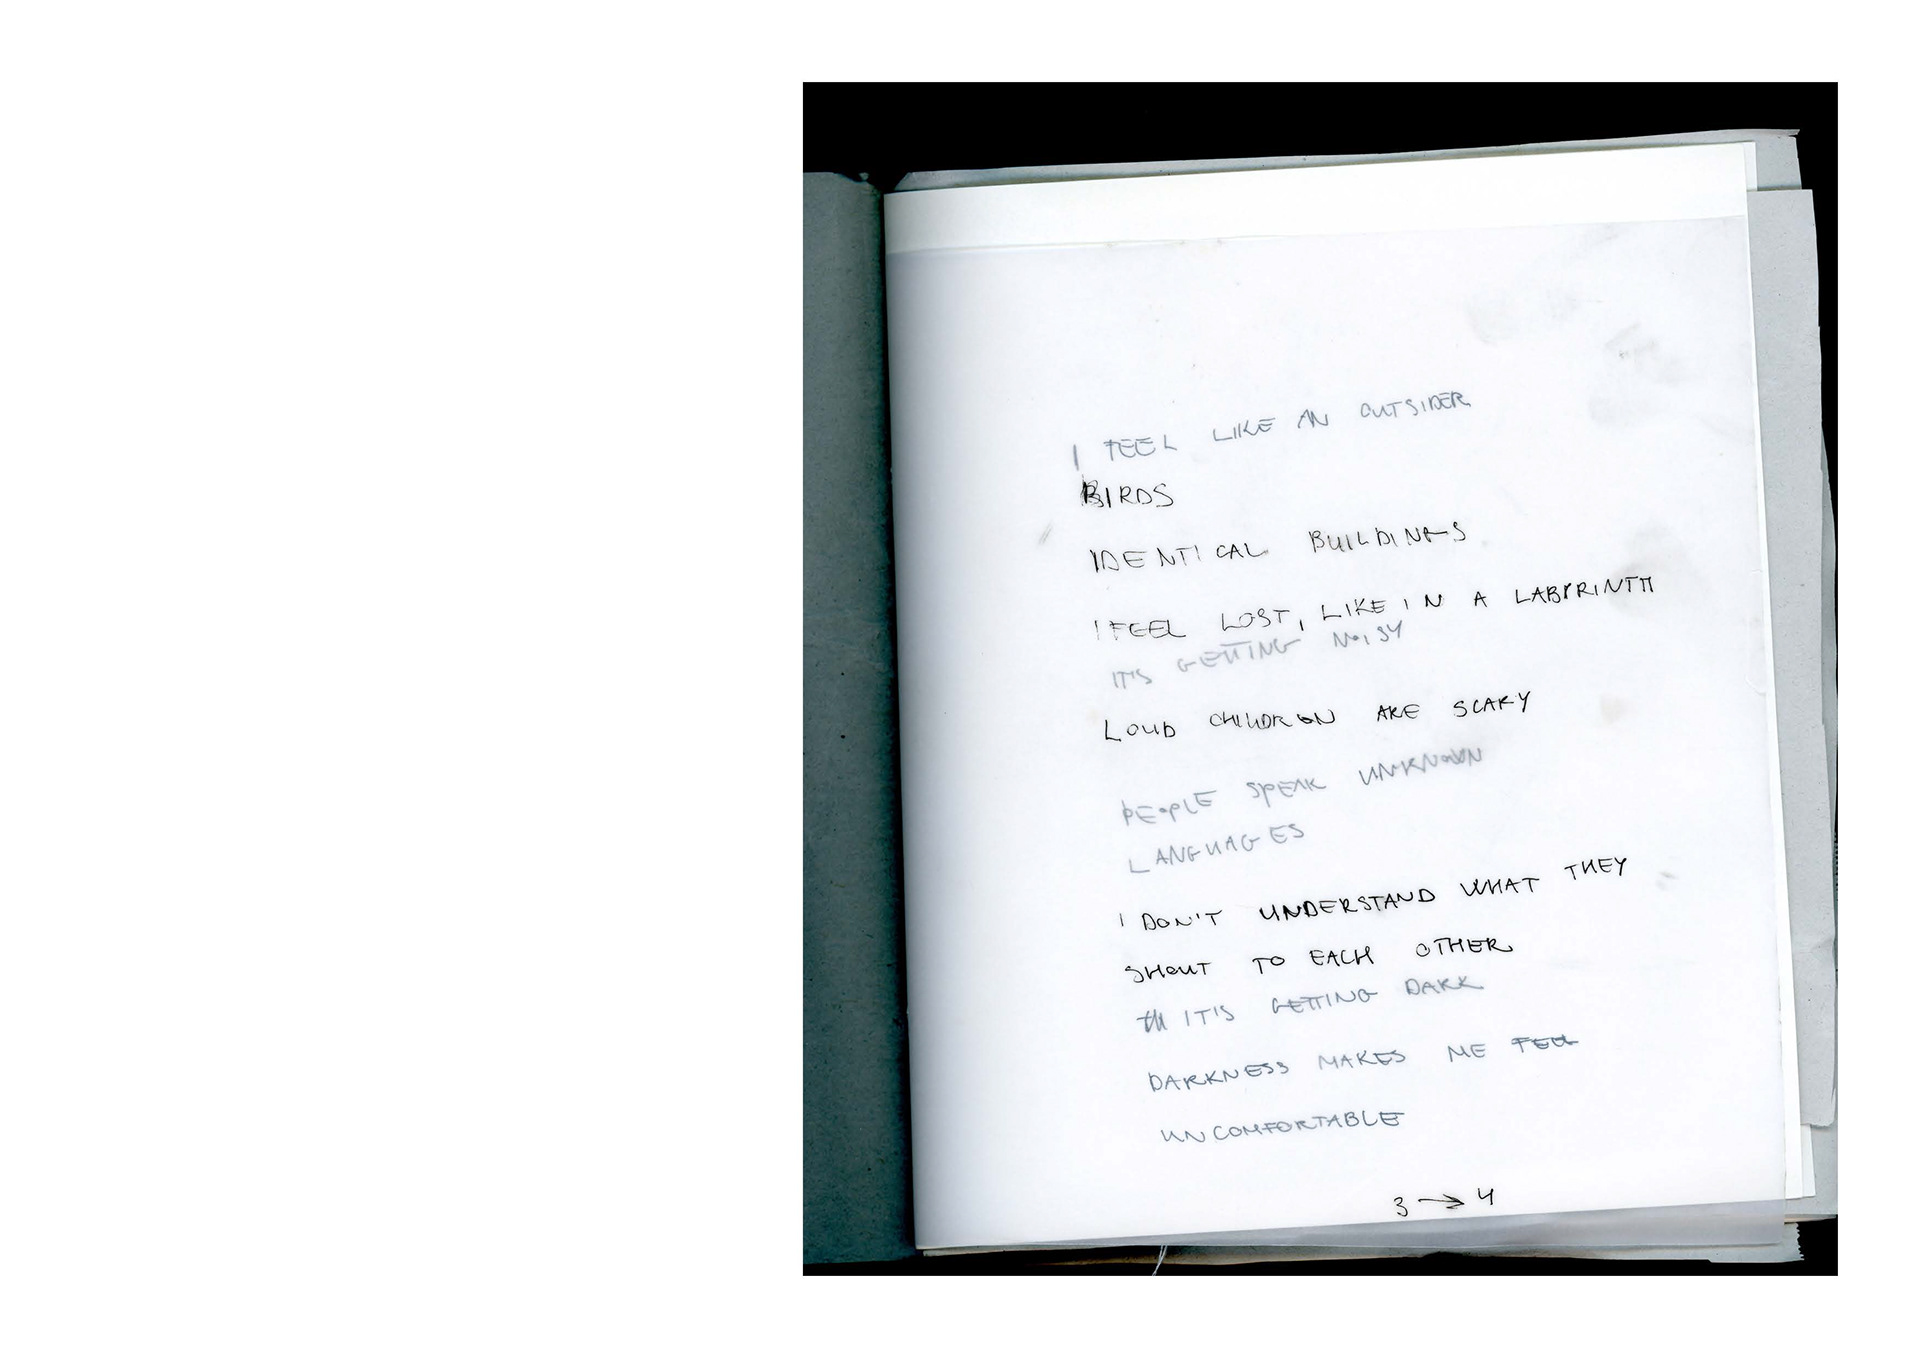 I FEEL LIKE AN OUTSIDER
BIRDS
IDENTICAL BUILDINGS
I FEEL LOST, LIKE IN A LABYRINTH
IT'S GETTING NOISY
LOUD CHILDREN ARE SCARY
PEOPLE SPEAK UNKNOWN
LANGUAGES
I DON'T UNDERSTAND WHAT THEY
SHOUT TO EACH OTHER
IT'S GETTING DARK
DARKNESS MAKES ME FEEL
UNCOMFORTABLE
3 → 4